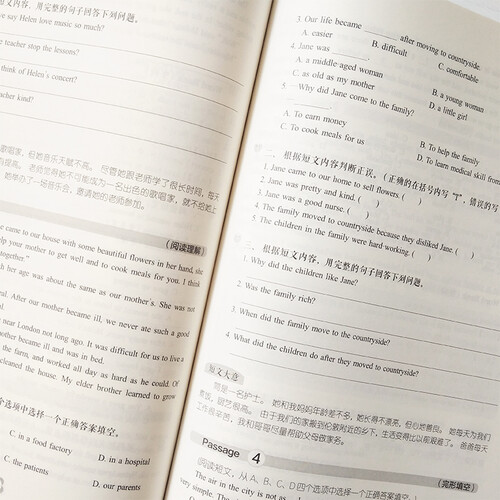 短文内容，用完整的句子回答下列问题。
ve say Helen love music so much?
e teacher stop the lessons?
think of Helen's concert?
acher kind?
歌唱家，但她音乐天赋不高。尽管她跟老师学了很长时间，每天
有提高。老师觉得她不可能成为一名出色的歌唱家，就不给她上
她举办了一场音乐会，邀请她的老师参加。
(阅读理解)
e came to our house with some beautiful flowers in her hand, she
elp your mother to get well and to cook meals for you. I think
ogether."
h her age was about the same as our mother's. She was not
eal. After our mother became ill, we never ate such a good
near London not long ago. It was difficult for us to live a
mother became ill and was in bed.
the farm, and worked all day as hard as he could. Of
cleaned the house. My elder brother learned to grow
个选项中选择一个正确答案填空。
C. in a food factory D. in a hospital
C. the patients D. our parents
3. Our life became ________ after moving to countryside.
A. easier B. difficult C. comfortable
4. Jane was ________.
A. a middle-aged woman B. a young woman
C. as old as my mother D. a little girl
5. Why did Jane come to the family?
________.
A. To earn money B. To help the family
C. To cook meals for us D. To learn medical skill from
二、根据短文内容判断正误。(正确的在括号内写“T”，错误的写
1. Jane came to our home to sell flowers. ( )
2. Jane was pretty and kind. ( )
3. Jane was a good nurse. ( )
4. The family moved to countryside because they disliked Jane. ( )
5. The children in the family were hard-working. ( )
三、根据短文内容，用完整的句子回答下列问题。
1. Why did the children like Jane?
2. Was the family rich?
3. When did the family move to the countryside?
4. What did the children do after they moved to countryside?
短文大意
简是一名护士。她和我妈妈年龄差不多，她长得不漂亮，但心地善良。她每天为我们
煮饭，厨艺很高。由于我们的家搬到伦敦附近的乡下，生活变得比以前艰难了。爸爸每天
工作很辛苦，我和哥哥尽量帮助父母做家务。
Passage 4 (完形填空)
阅读短文，从 A、B、C、D四个选项中选择一个正确答案填空。
The air in the city is not as
very simple. The